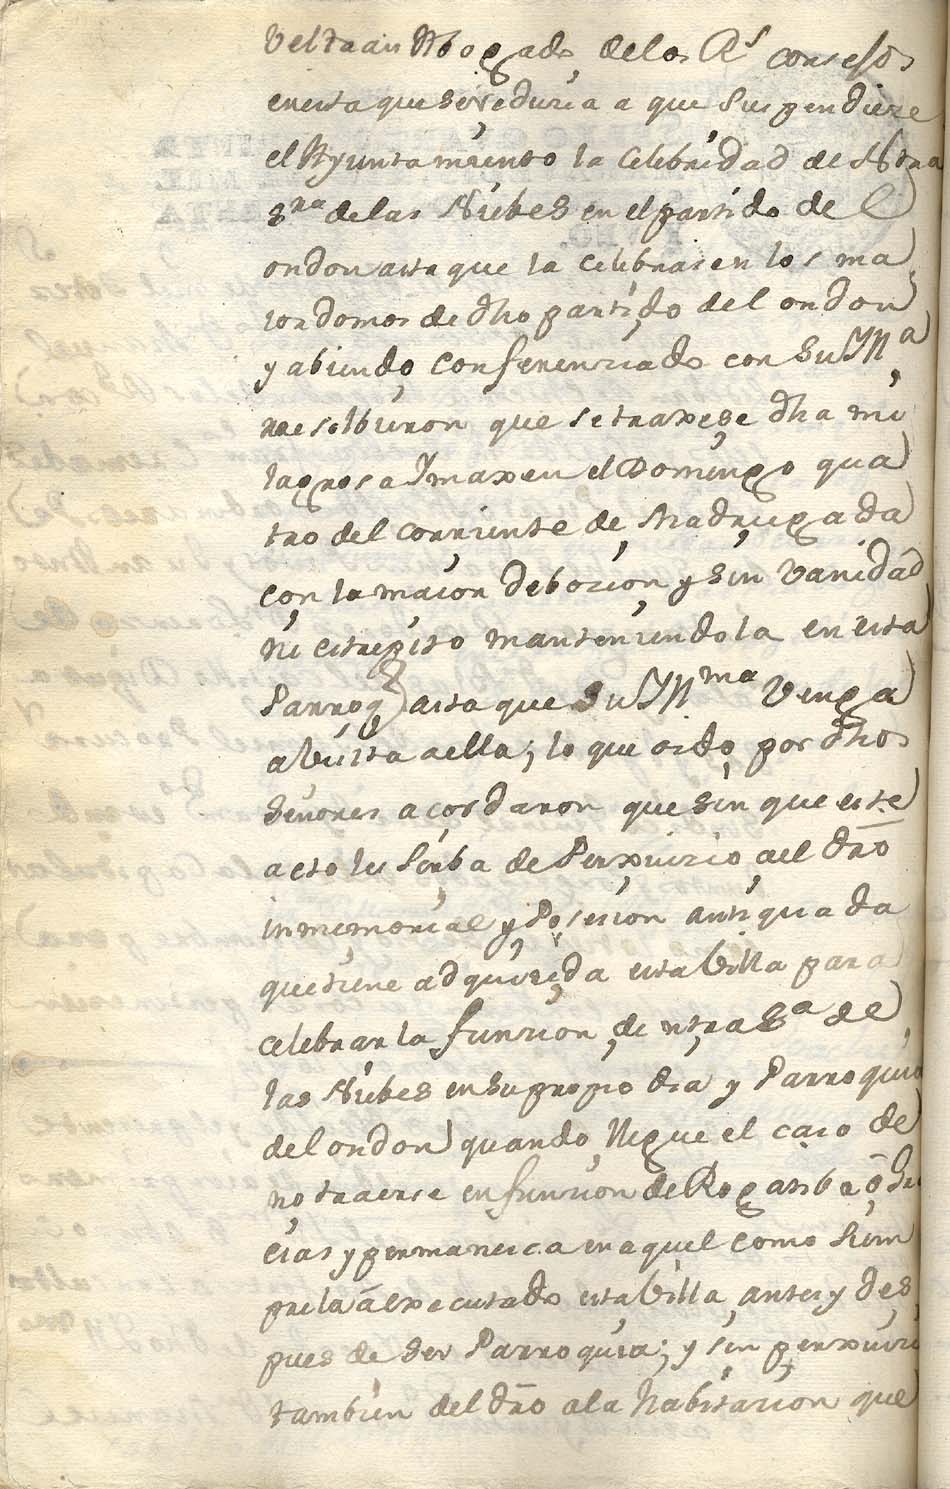 Veltran Abogado de los Rs consejos
en esta que se reducia a que suspendiere
el Ayuntamiento la Celebridad de Ntra
Sra de las Niebes en el partido de
ondon asta que la celebrasen los ma
iordomos de dho partido del ondon
y abiendo conferenziado con su Yllma
resolbieron que se traxese dha mi
lagrosa Ymaxen el Domingo qua
tro del corriente de Madrugada
con la maior debozion y sin vanidad
ni estrepito manteniendola en esta
Parroqa asta que su Yllma venga
a bisita a ella; lo que oido por dhos
señores acordaron que sin que este
acto les sirba de Perxuizio a el dro
inmemorial y Posesion antiquada
que tiene adquirida esta Villa para
celebrar la funzion de ntra Sa de
las Niebes en su propio dia y Parroquia
del ondon quando llegue el caso de
no traerse en funzion de Rogatiba ó Gra
cias y permanezca en aquel como siem
pre la á executado esta Villa, antes y des
pues de ser Parroquia; y sin perxuizi
tambien del dro a la habitazion que